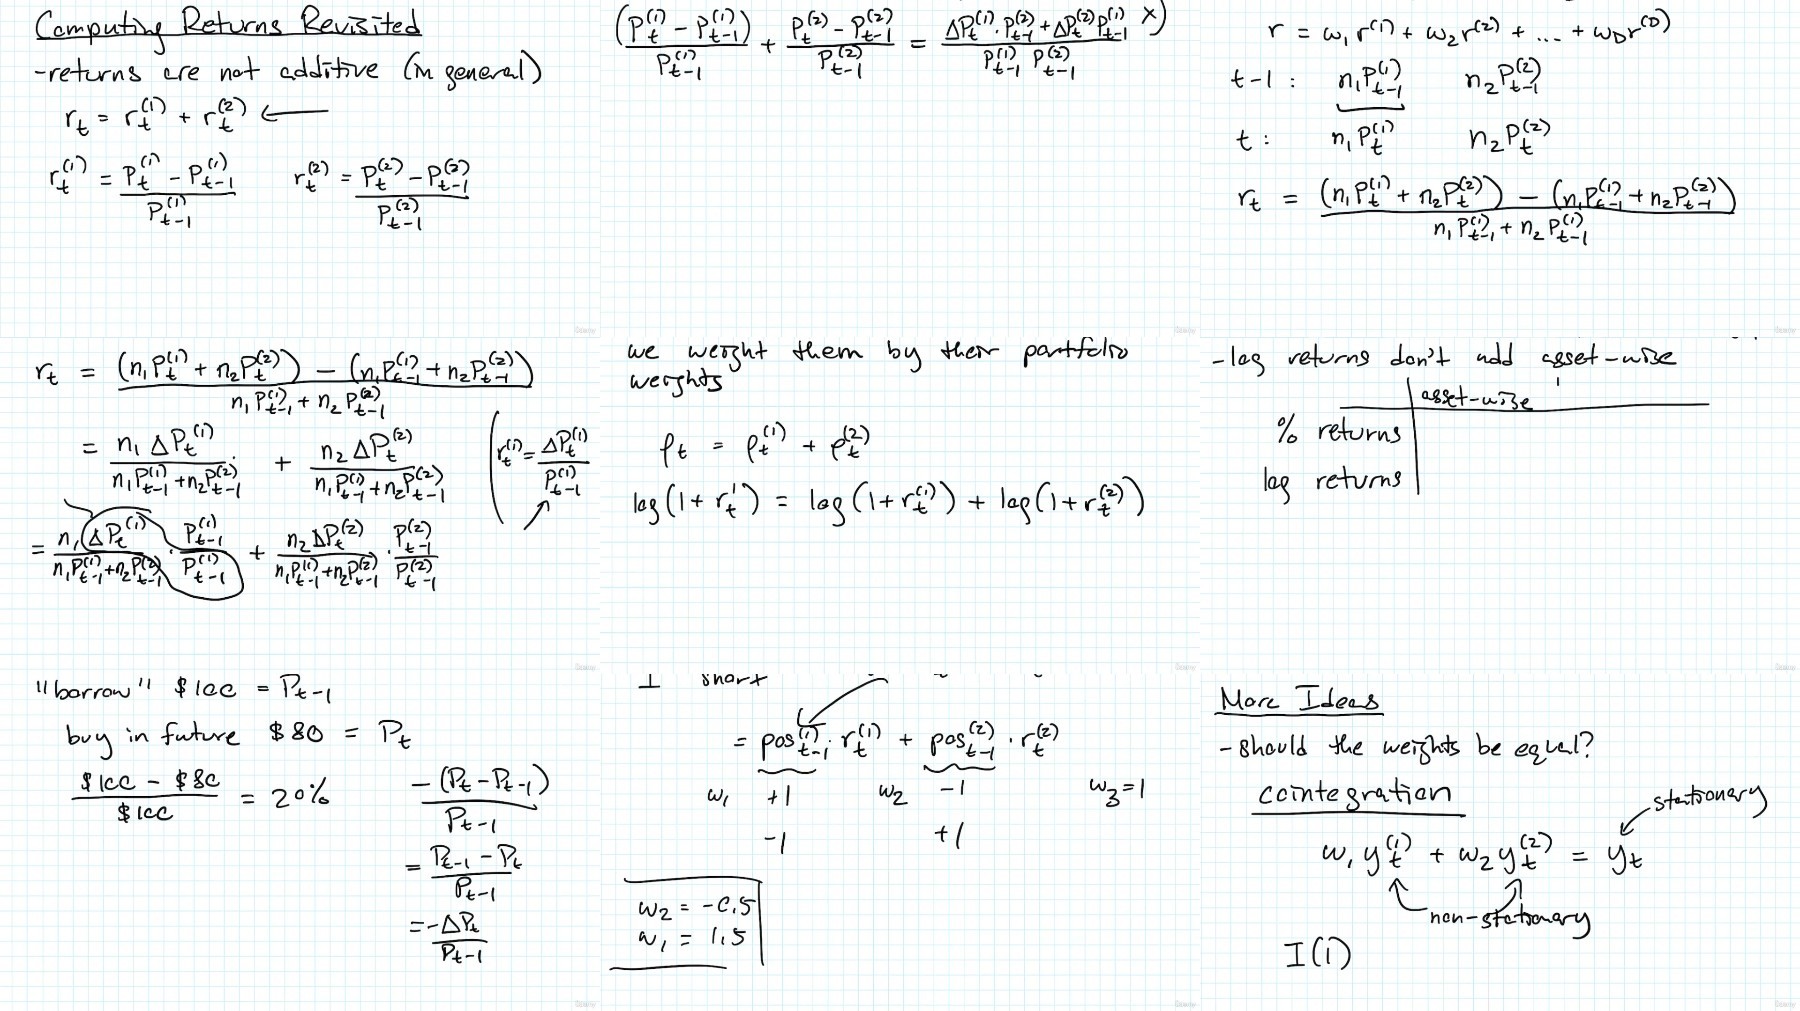 Computing Returns Revisited
-returns are not additive (in general)
r_t = r_t^(1) + r_t^(2) ←
r_t^(1) = (P_t^(1) - P_{t-1}^(1)) / P_{t-1}^(1)   r_t^(2) = (P_t^(2) - P_{t-1}^(2)) / P_{t-1}^(2)
(P_t^(1) - P_{t-1}^(1)) / P_{t-1}^(1) + (P_t^(2) - P_{t-1}^(2)) / P_{t-1}^(2) = (ΔP_t^(1) · P_{t-1}^(2) + ΔP_t^(2) P_{t-1}^(1)) / (P_{t-1}^(1) P_{t-1}^(2)) X)
r = w_1 r^(1) + w_2 r^(2) + ... + w_D r^(D)
t-1 : n_1 P_{t-1}^(1)   n_2 P_{t-1}^(2)
t : n_1 P_t^(1)   n_2 P_t^(2)
r_t = ((n_1 P_t^(1) + n_2 P_t^(2)) - (n_1 P_{t-1}^(1) + n_2 P_{t-1}^(2))) / (n_1 P_{t-1}^(1) + n_2 P_{t-1}^(1))
r_t = ((n_1 P_t^(1) + n_2 P_t^(2)) - (n_1 P_{t-1}^(1) + n_2 P_{t-1}^(2))) / (n_1 P_{t-1}^(1) + n_2 P_{t-1}^(2))
= n_1 ΔP_t^(1) / (n_1 P_{t-1}^(1) + n_2 P_{t-1}^(2)) + n_2 ΔP_t^(2) / (n_1 P_{t-1}^(1) + n_2 P_{t-1}^(2))   ( r_t^(1) = ΔP_t^(1) / P_{t-1}^(1)
= n_1 ΔP_t^(1) / (n_1 P_{t-1}^(1) + n_2 P_{t-1}^(2)) · P_{t-1}^(1) / P_{t-1}^(1) + n_2 ΔP_t^(2) / (n_1 P_{t-1}^(1) + n_2 P_{t-1}^(2)) · P_{t-1}^(2) / P_{t-1}^(2)
we weight them by their portfolio
weights
ρ_t = ρ_t^(1) + ρ_t^(2)
log(1 + r_t') = log(1 + r_t^(1)) + log(1 + r_t^(2))
-log returns don't add asset-wise
asset-wise
% returns
log returns
"borrow" $100 = P_{t-1}
buy in future $80 = P_t
($100 - $80) / $100 = 20%   -(P_t - P_{t-1}) / P_{t-1}
= (P_{t-1} - P_t) / P_{t-1}
= -ΔP_t / P_{t-1}
short
= pos_{t-1}^(1) · r_t^(1) + pos_{t-1}^(2) · r_t^(2)
w_1 +1   w_2 -1   w_3 = 1
-1   +1
w_2 = -0.5
w_1 = 1.5
More Ideas
-should the weights be equal?
cointegration
stationary
w_1 y_t^(1) + w_2 y_t^(2) = y_t
non-stationary
I(1)